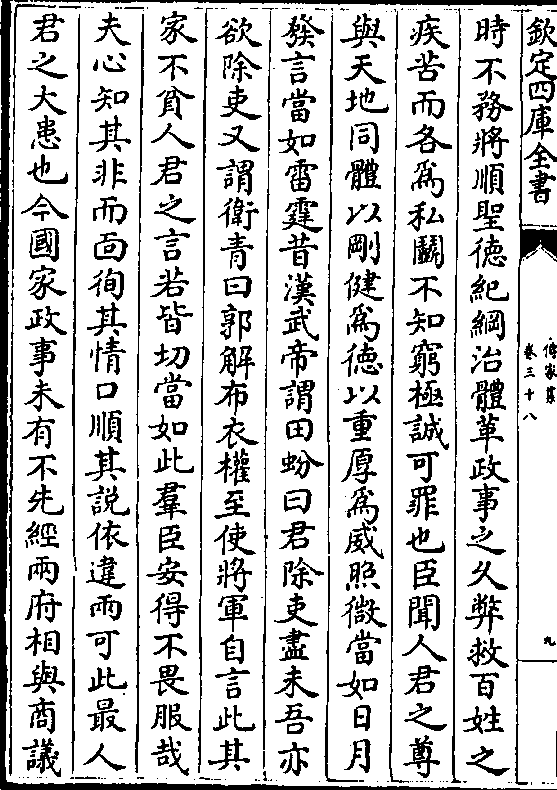 欽定四庫全書
傳家集
卷三十八
九
時不務將順聖徳紀綱治體革政事之久弊救百姓之
疾苦而各為私鬭不知窮極誠可罪也臣聞人君之尊
與天地同體以剛健為徳以重厚為威照微當如日月
發言當如雷霆昔漢武帝謂田蚡曰君除吏盡未吾亦
欲除吏又謂衛青曰郭解布衣權至使將軍自言此其
家不貧人君之言若皆切當如此羣臣安得不畏服哉
夫心知其非而面徇其情口順其説依違兩可此最人
君之大患也今國家政事未有不先經兩府相與商議